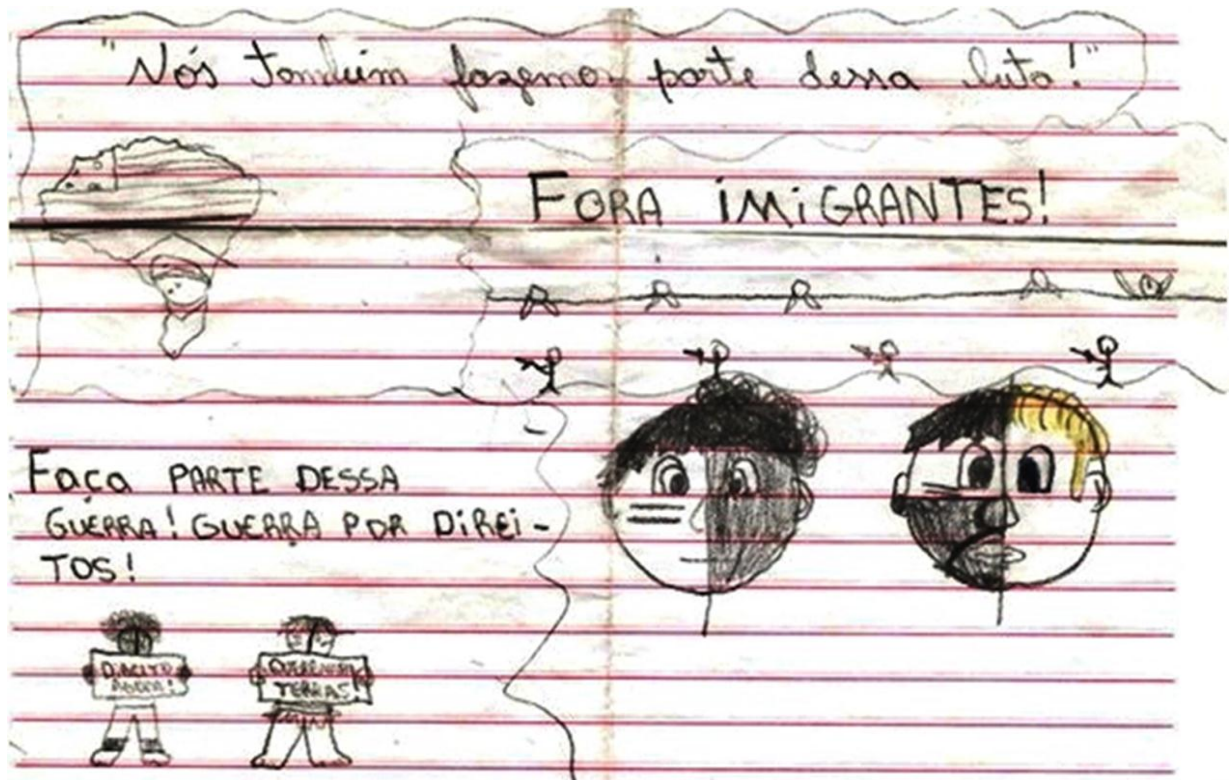 "Nós também fazemos parte dessa luta!"
FORA IMIGRANTES!
FAÇA PARTE DESSA
GUERRA! GUERRA POR DIREI-
TOS!
DIREITO
AGORA!
QUEREMOS
TERRAS!